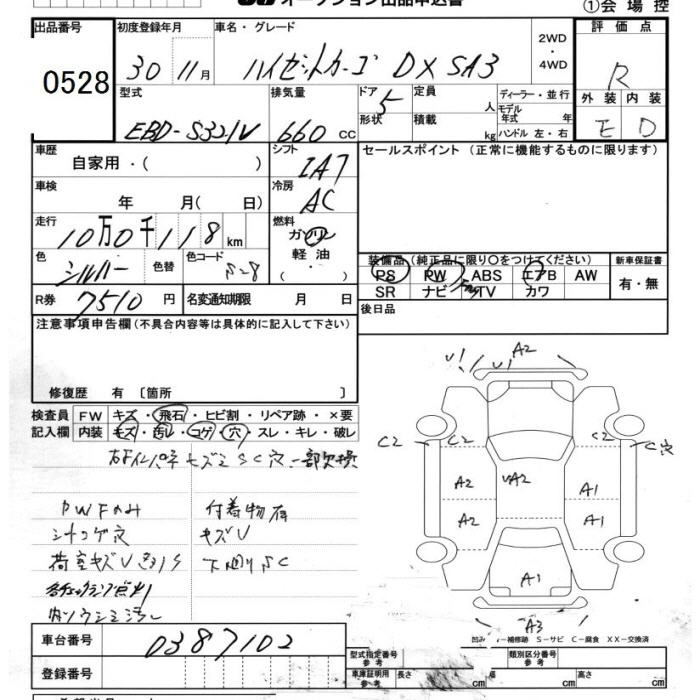 オークション出品申込書
①会場控
出品番号
0528
初度登録年月
30 11月
車名・グレード
ハイゼットカーゴ DX SA3
2WD
・
4WD
評価点
R
型式
EBD-S321V
排気量
660 cc
ドア
5
形状
定員
人
積載
kg
ディーラー・並行
モデル
年式 年
ハンドル 左・右
外装 内装
E D
車歴
自家用・( )
シフト
IA7
セールスポイント(正常に機能するものに限ります)
車検
年 月(日)
冷房
AC
走行
10万0千118km
燃料
ガソリン
軽油
( )
色
シルバー
色替
色コード
S28
装備品(純正品に限り○をつけてください)
PS PW ABS エアB AW
SR ナビ TV カワ
新車保証書
有・無
R券 7510円
名変通知期限 月 日
後日品
注意事項申告欄(不具合内容等は具体的に記入して下さい)
修復歴 有〔箇所 〕
検査員
記入欄
FW キズ・飛石・ヒビ割・リペア跡・×要
内装 キズ・汚レ・コゲ・穴・スレ・キレ・破レ
キズミSC穴 一部欠損
PWFのみ
付着物有
シートコゲ穴
キズU
荷室キズU
下廻りSC
U U A2
C2 C2 C穴
A2 UA2 A1
A2 A1
A1
A3
補修跡 S-サビ C-腐食 XX-交換済
車台番号
0387102
登録番号
型式指定番号
参考
類別区分番号
参考
車庫証明用
参考
長さ cm
幅 cm
高さ cm